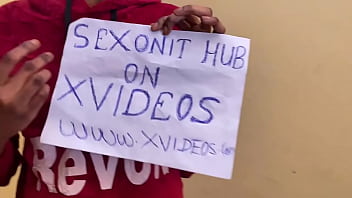 SEXONIT HUB
ON
XVIDEOS
WWW.XVIDEOS.Com
Revo